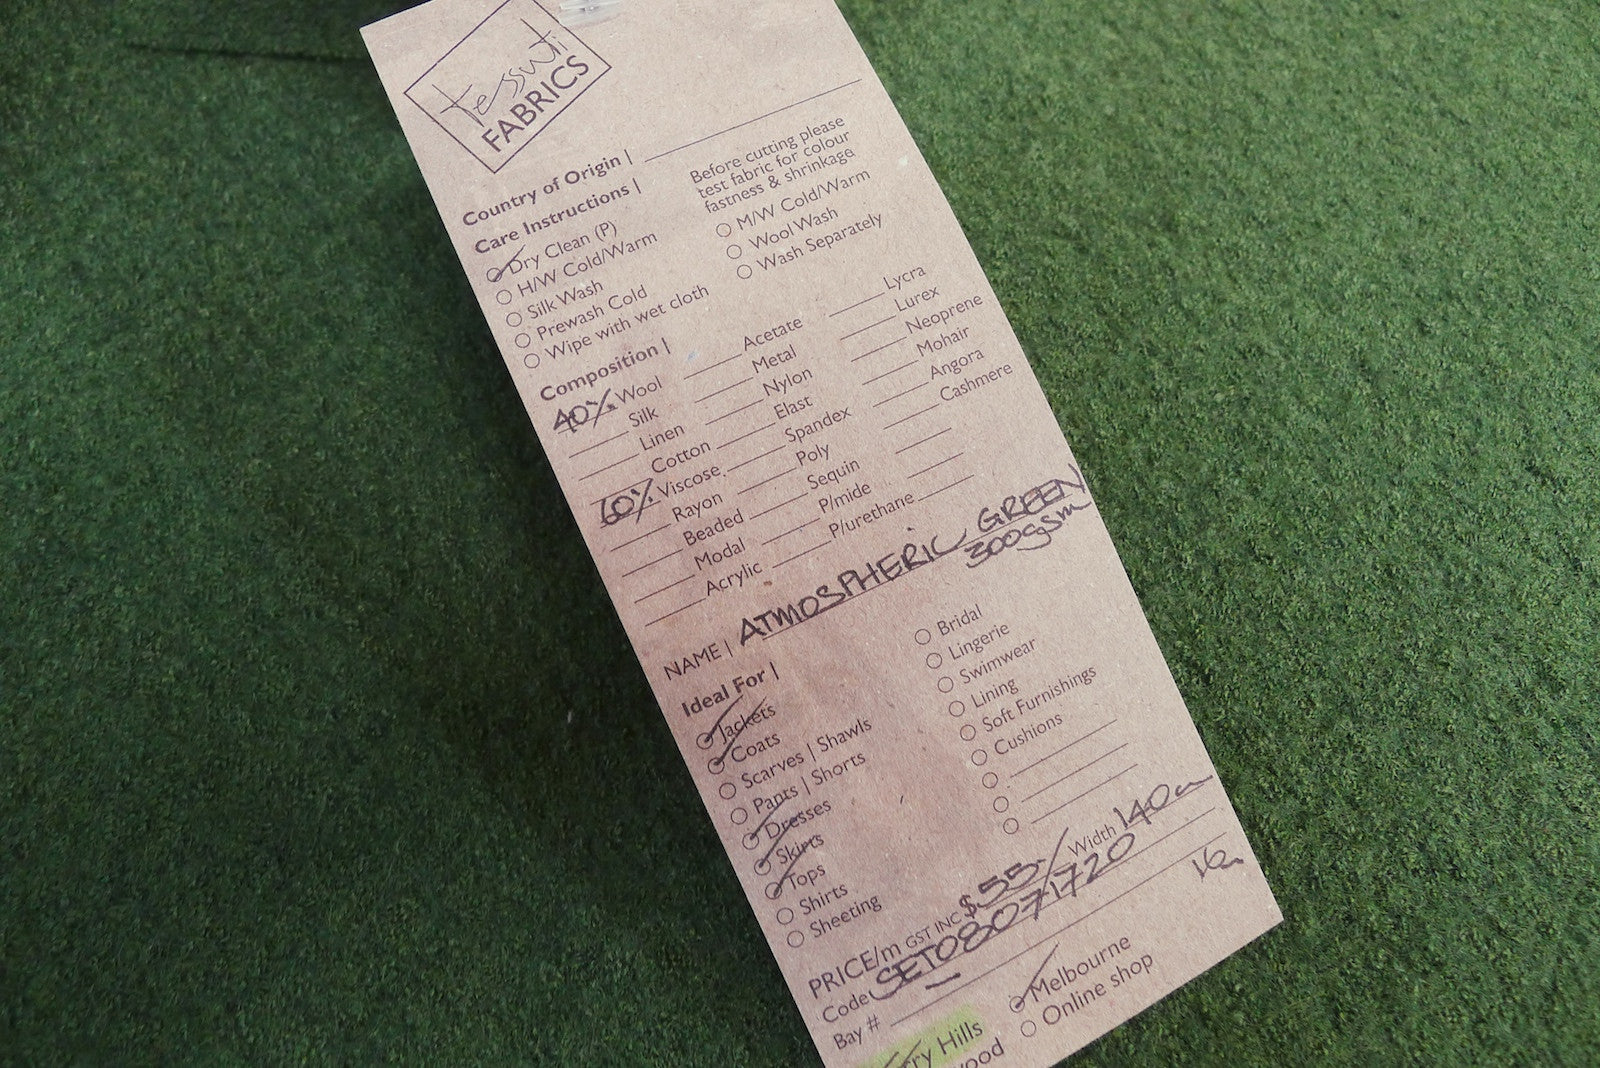 tessuti
FABRICS
Country of Origin |
Care Instructions |
Before cutting please
test fabric for colour
fastness & shrinkage
Dry Clean (P)
H/W Cold/Warm
Silk Wash
Prewash Cold
Wipe with wet cloth
M/W Cold/Warm
Wool Wash
Wash Separately
Composition |
40% Wool
Silk
Linen
Cotton
60% Viscose
Rayon
Beaded
Modal
Acrylic
Acetate
Metal
Nylon
Elast
Spandex
Poly
Sequin
P/mide
P/urethane
Lycra
Lurex
Neoprene
Mohair
Angora
Cashmere
NAME | ATMOSPHERIC GREEN
300gsm
Ideal For |
Jackets
Coats
Scarves | Shawls
Pants | Shorts
Dresses
Skirts
Tops
Shirts
Sheeting
Bridal
Lingerie
Swimwear
Lining
Soft Furnishings
Cushions
PRICE/m GST INC $55- Width 140cm
Code SET08071720
Bay #
Hills
Melbourne
Online shop